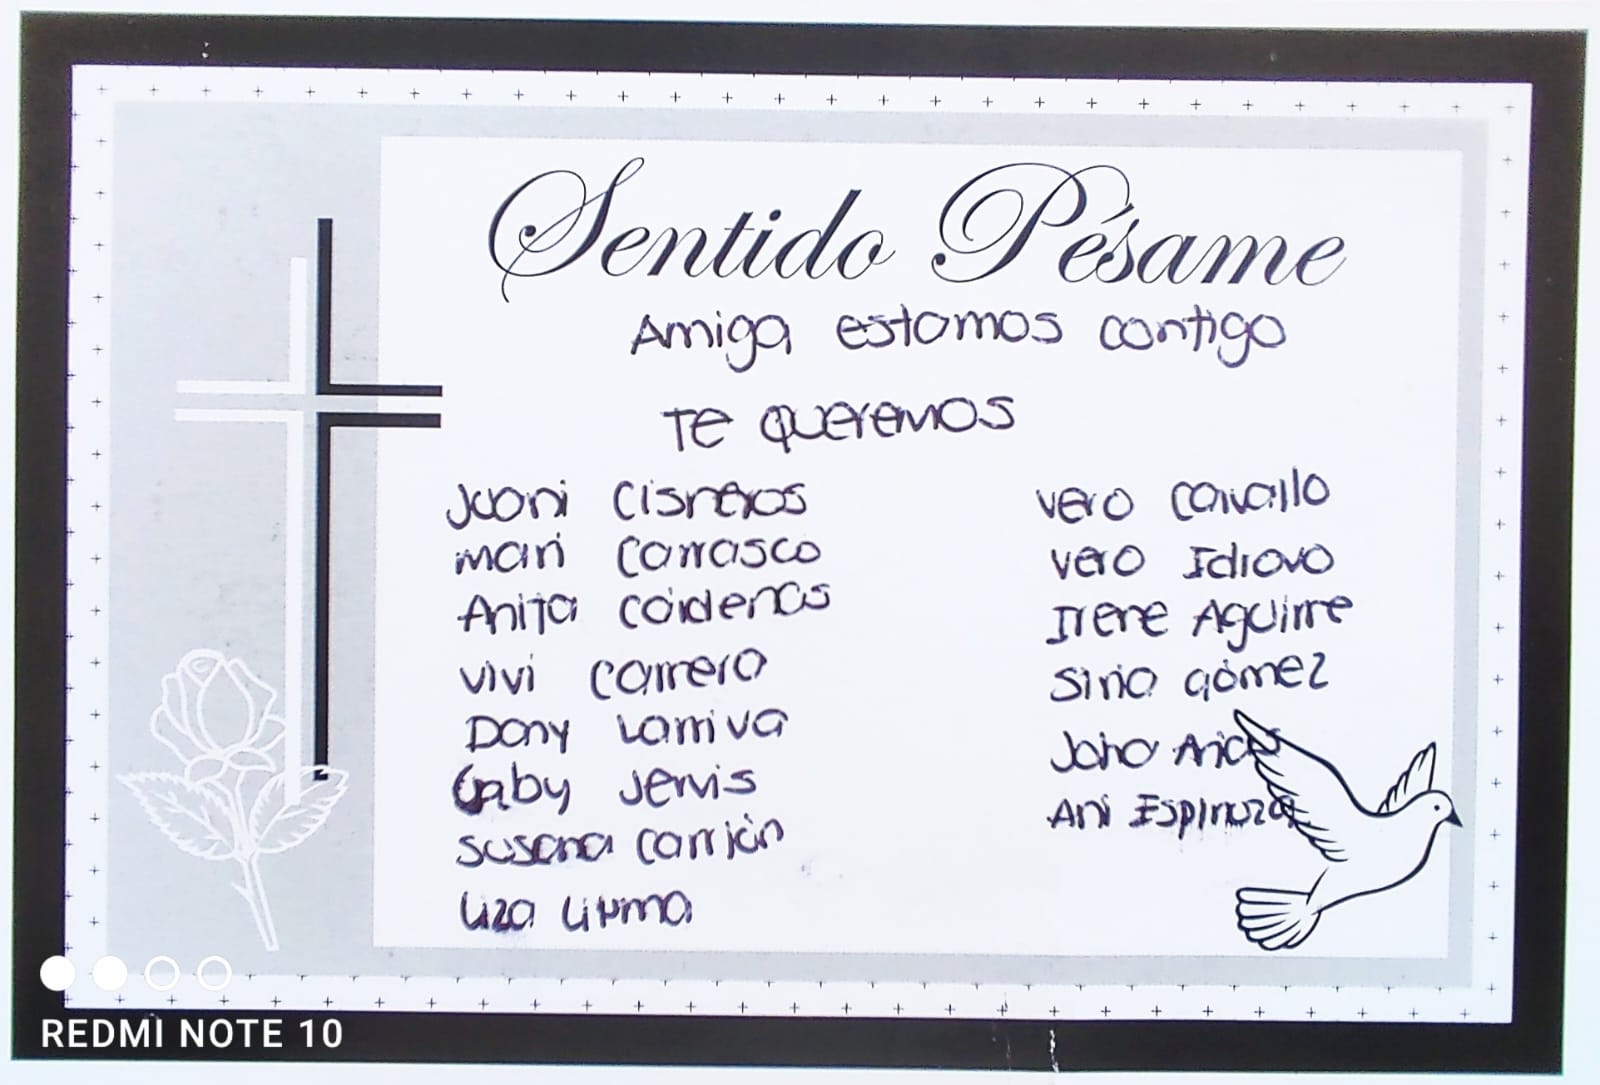 Sentido Pésame
Amiga estamos contigo
Te queremos
Juani Cisneros
Mari Carrasco
Anita Cárdenas
Vivi Carrera
Dany Larriva
Gaby Jervis
Susana Carrión
Liza Lituma
Vero Carvallo
Vero Idrovo
Irene Aguirre
Siria Gómez
Ani Espinoza
REDMI NOTE 10